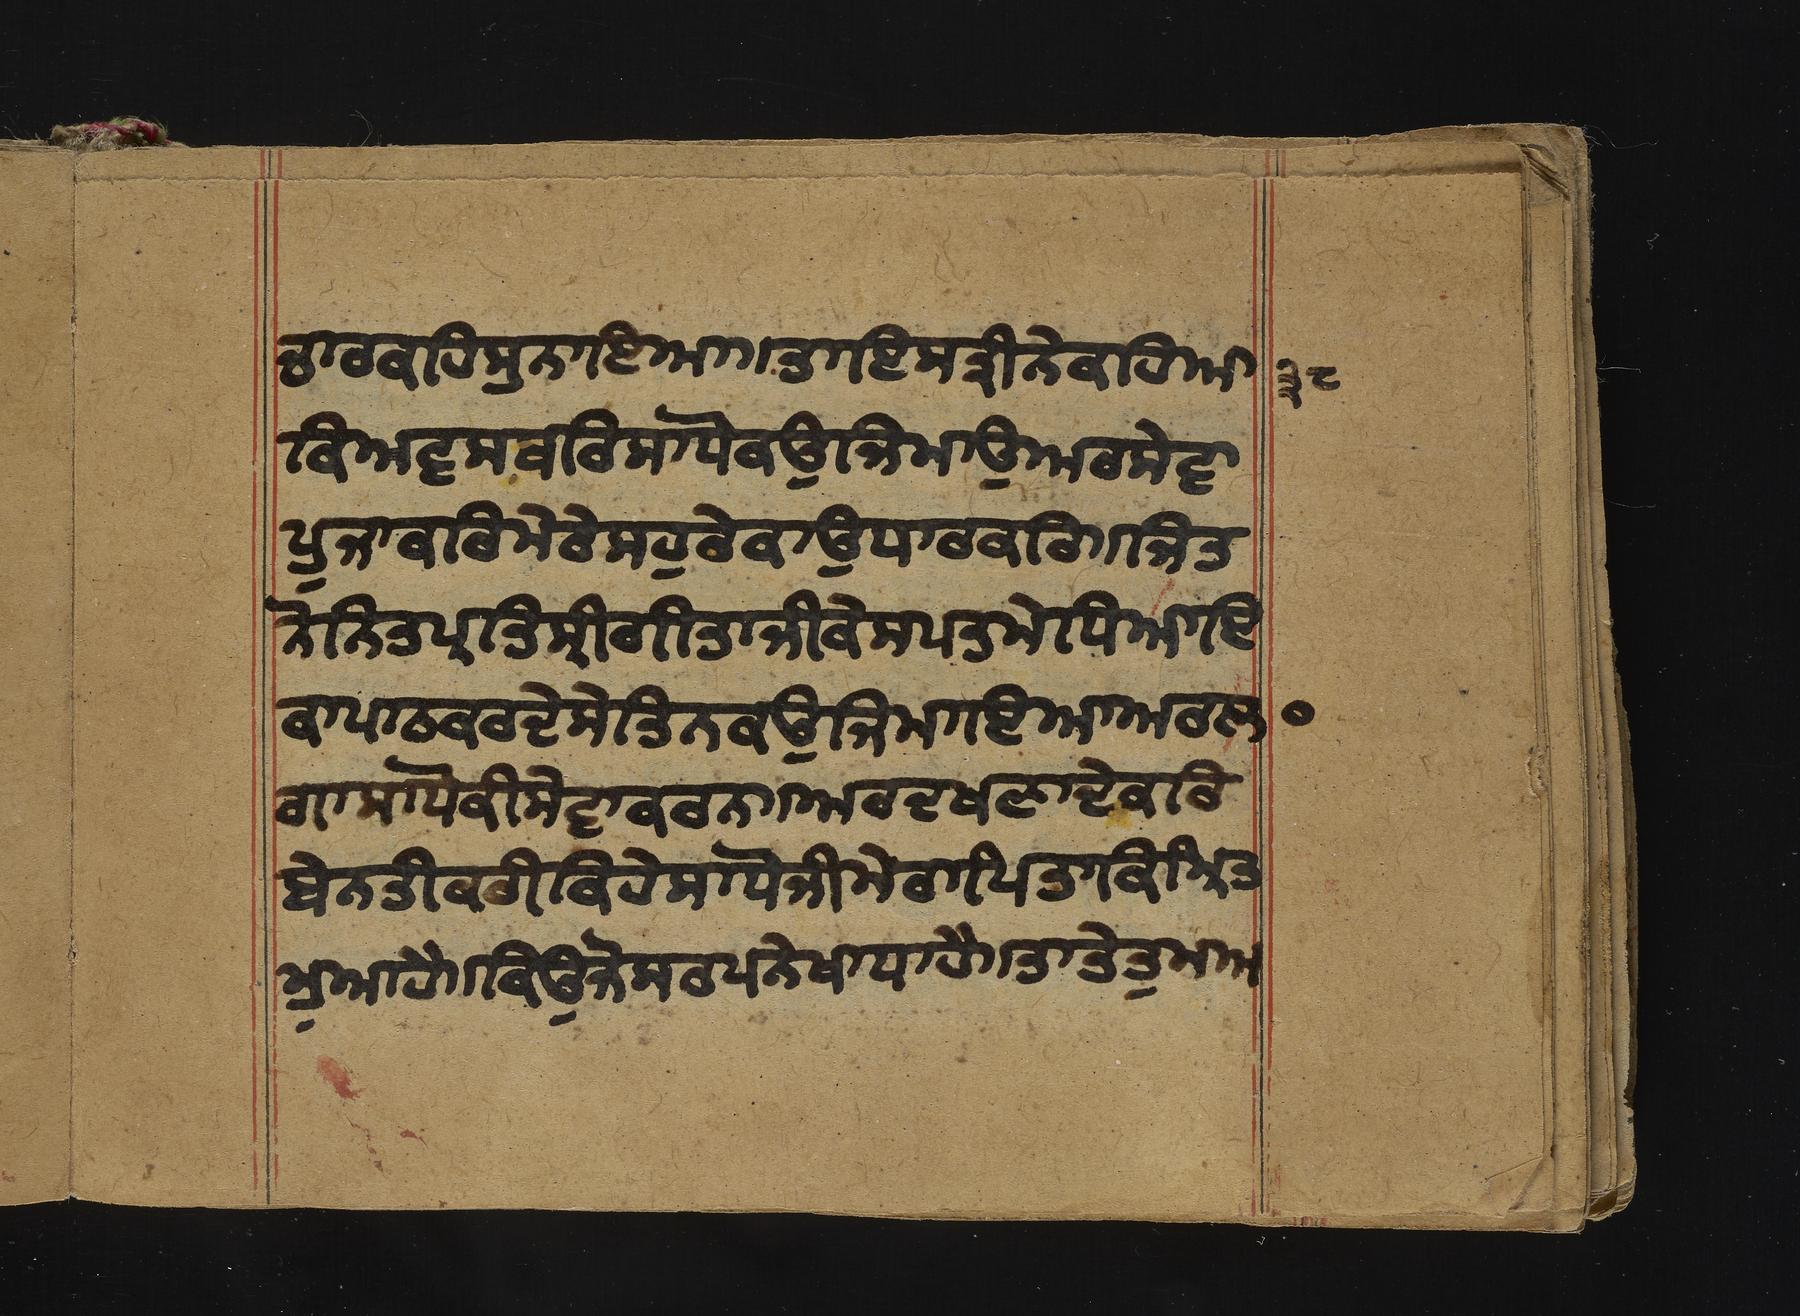 ਠਾਰਕਹਿਸੁਨਾਇਆ॥ਤਾਇਸਤ੍ਰੀਨੇਕਹਿਆ ੩੮
ਕਿਅਵਸਕਰਿਸਾਧੋਕਉਜਿਮਾਉਅਰਸੇਵਾ
ਪੁਜਾਕਰਿਮੇਰੇਸਹੁਰੇਕਾਉਧਾਰਕਰਿ॥ਜਿਤ
ਨੇਨਿਤਪ੍ਰਤਿਸ੍ਰੀਗੀਤਾਜੀਕੇਸਪਤਮੇਧਿਆਇ
ਕਾਪਾਠਕਰਦੇਸੇਤਿਨਕਉਜਿਮਾਇਆਅਰਲ ੦
ਗਾਸਾਧੋਕੀਸੇਵਾਕਰਨਾ॥ਅਰਦਖਣਾਦੇਕਰਿ
ਬੇਨਤੀਕਰੀਕਿਹੇਸਾਧੋਜੀਮੇਰਾਪਿਤਾਕਿਮ੍ਰਿਤ
ਮੁਆਹੈ॥ਕਿਉਜੋਸਰਪਨੇਖਾਧਾਹੈ॥ਤਾਤੇਤੁਮਅ